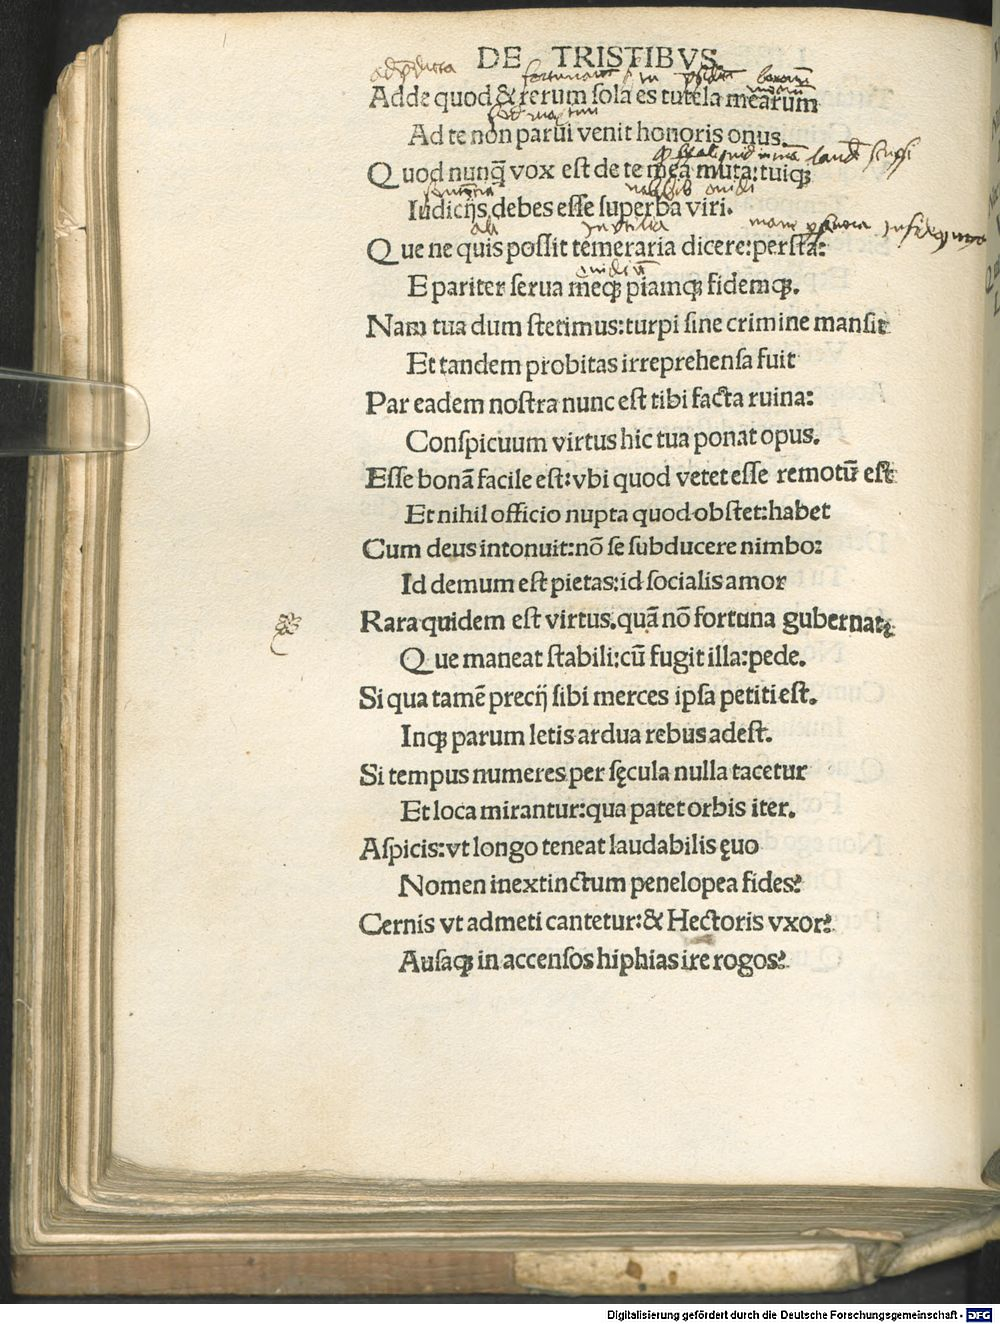 DE TRISTIBVS
Adde quod & rerum ſola es tutela mearum
Ad te non parui venit honoris onus.
Quod nunq̃ vox eſt de te mea muta: tuiqꝫ
Iudicijs debes eſſe ſuperba viri.
Que ne quis poſſit temeraria dicere: perſta:
E pariter ſerua meqꝫ piamqꝫ fidemqꝫ.
Nam tua dum ſtetimus: turpi ſine crimine manſit
Et tandem probitas irreprehenſa fuit
Par eadem noſtra nunc eſt tibi facta ruina:
Conſpicuum virtus hic tua ponat opus.
Eſſe bonã facile eſt: vbi quod vetet eſſe remotũ eſt
Et nihil officio nupta quod obſtet: habet
Cum deus intonuit: nõ ſe ſubducere nimbo:
Id demum eſt pietas: id ſocialis amor
Rara quidem eſt virtus. quã nõ fortuna gubernat:
Que maneat ſtabili: cũ fugit illa: pede.
Si qua tamẽ precij ſibi merces ipſa petiti eſt.
Inqꝫ parum letis ardua rebus adeſt.
Si tempus numeres per ſęcula nulla tacetur
Et loca mirantur: qua patet orbis iter.
Aſpicis: vt longo teneat laudabilis ęuo
Nomen inextinctum penelopea fides?
Cernis vt admeti cantetur: & Hectoris vxor?
Auſaqꝫ in accenſos hiphias ire rogos?
Digitalisierung gefördert durch die Deutsche Forschungsgemeinschaft - DFG